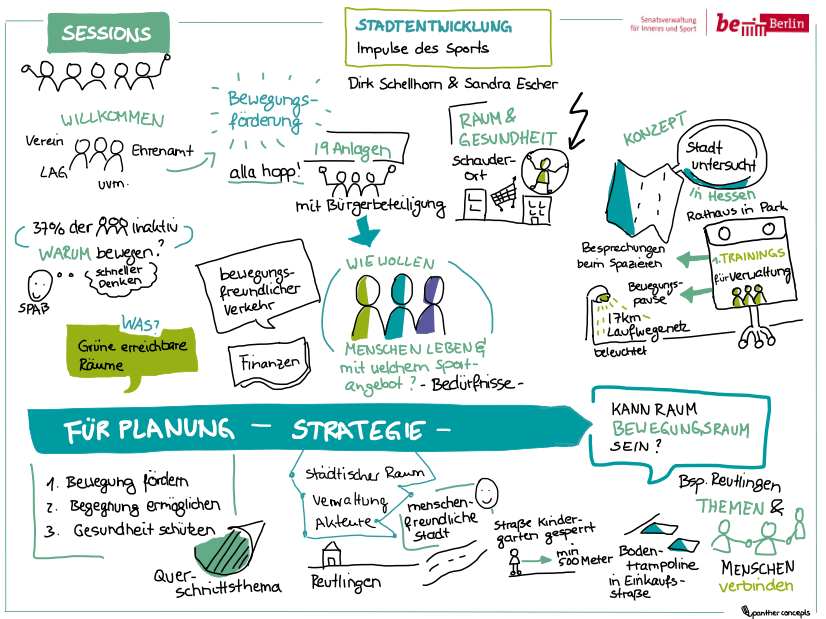 SESSIONS
STADTENTWICKLUNG
Impulse des Sports
Senatsverwaltung
für Inneres und Sport
be Berlin
Dirk Schellhorn & Sandra Escher
WILLKOMMEN
Verein
Ehrenamt
LAG
uvm.
Bewegungs-
förderung
alla hopp!
19 Anlagen
mit Bürgerbeteiligung
RAUM &
GESUNDHEIT
Schauder-
ort
KONZEPT
Stadt
untersucht
in Hessen
Rathaus in Park
1. TRAININGS
für Verwaltung
Besprechungen
beim Spazieren
Bewegungs-
pause
17km
Laufwegenetz
beleuchtet
37% der inaktiv
WARUM bewegen?
schneller
Denken
SPAß
WAS?
Grüne erreichbare
Räume
bewegungs-
freundlicher
Verkehr
Finanzen
WIE WOLLEN
MENSCHEN LEBEN &
mit welchem Sport-
angebot? - Bedürfnisse -
FÜR PLANUNG - STRATEGIE -
KANN RAUM
BEWEGUNGSRAUM
SEIN?
1. Bewegung fördern
2. Begegnung ermöglichen
3. Gesundheit schützen
Quer-
schnittsthema
Städtischer Raum
Verwaltung
Akteure
menschen-
freundliche
Stadt
Reutlingen
Straße Kinder-
garten gesperrt
min
500 Meter
Boden-
trampoline
in Einkaufs-
straße
Bsp. Reutlingen
THEMEN &
MENSCHEN
verbinden
panther concepts